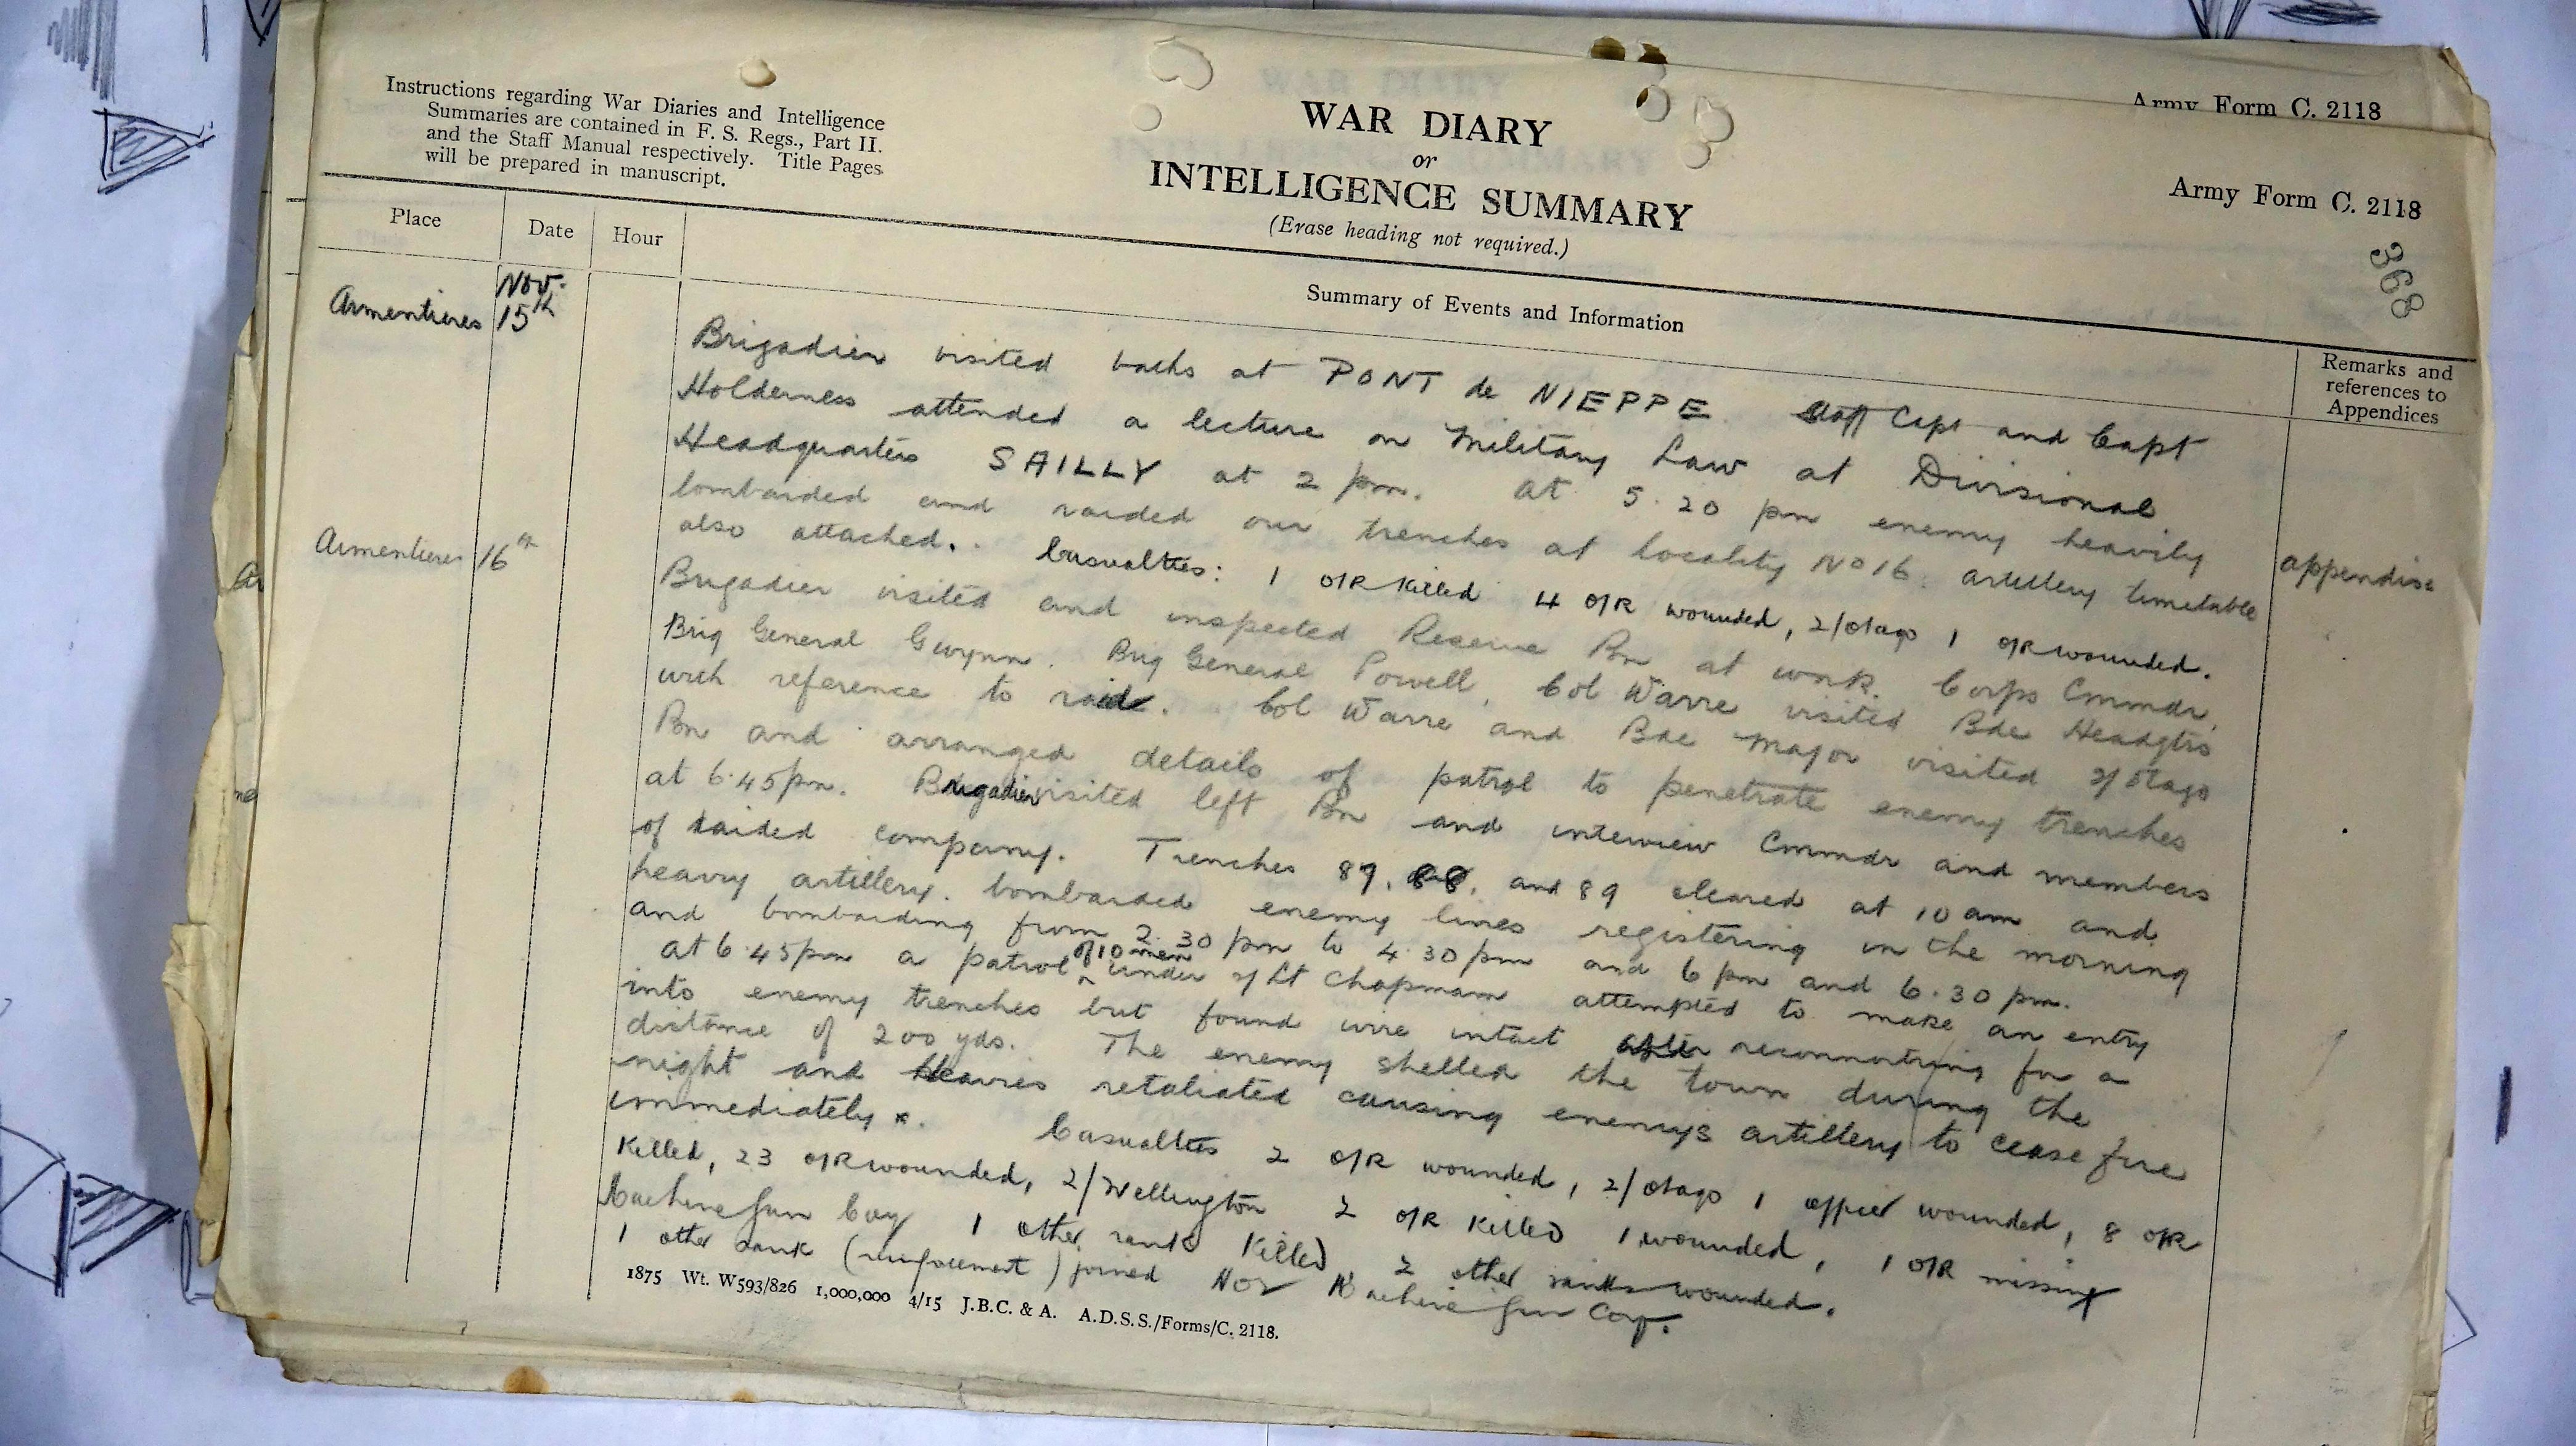 Instructions regarding War Diaries and Intelligence
Summaries are contained in F. S. Regs., Part II.
and the Staff Manual respectively. Title Pages
will be prepared in manuscript.
WAR DIARY
or
INTELLIGENCE SUMMARY
(Erase heading not required.)
Army Form C. 2118
Army Form C. 2118
368
Place
Date
Hour
Summary of Events and Information
Remarks and
references to
Appendices
Armentieres
Nov.
15th
Brigadier visited baths at PONT de NIEPPE. Staff Capt and Capt
Holderness attended a lecture on Military Law at Divisional
Headquarters SAILLY at 2 pm. At 5.20 pm enemy heavily
bombarded and raided our trenches at locality No 16. artillery timetable
appendix
also attached. Casualties: 1 O/R Killed 4 O/R wounded, 2/Otago 1 O/R wounded.
Armentieres 16th
Brigadier visited and inspected Reserve Bn at work. Corps Cmmdr,
Brig General Gwynn. Brig General Powell, Col Warre visited Bde Headqtrs
with reference to raid. Col Warre and Bde Major visited 2/Otago
Bn and arranged details of patrol to penetrate enemy trenches
at 6.45pm. Brigadier visited left Bn and interview Cmmdr and members
of raided company. Trenches 87, 88, and 89 cleared at 10 am and
heavy artillery bombarded enemy lines registering in the morning
and bombarding from 2.30 pm to 4.30 pm and 6 pm and 6.30 pm.
at 6.45pm a patrol of 10 men under 2/Lt Chapman attempted to make an entry
into enemy trenches but found wire intact after reconnoitring for a
distance of 200 yds. The enemy shelled the town during the
night and Heavies retaliated causing enemys artillery to cease fire
immediately. Casualties 2 O/R wounded, 2/Otago 1 officer wounded, 8 O/R
Killed, 23 O/R wounded, 2/Wellington 2 O/R Killed 1 wounded, 1 O/R missing
Machine Gun Coy 1 other rank Killed, 2 other ranks wounded.
1 other rank (reinforcement) joined No 2 Machine Gun Coy.
1875 Wt. W593/826 1,000,000 4/15 J.B.C. & A. A.D.S.S./Forms/C. 2118.